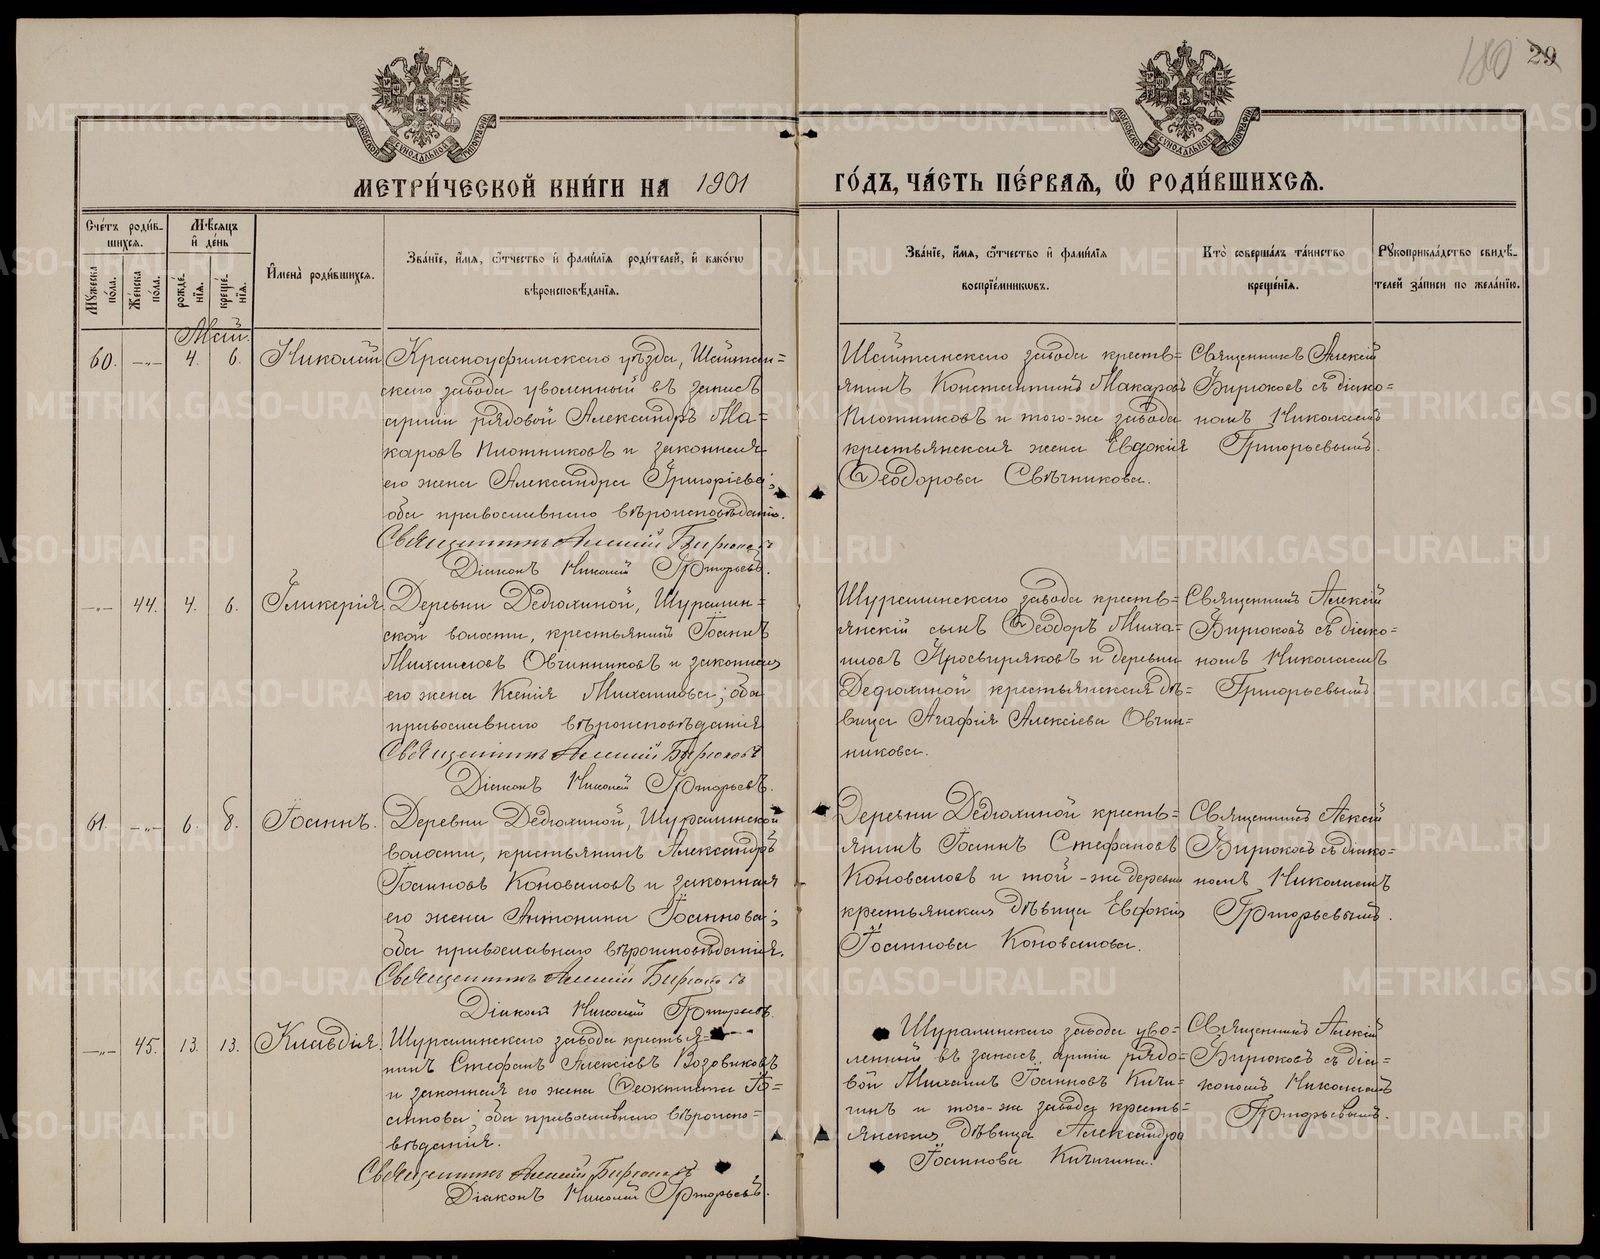 180 29
МОСКОВСКОЙ СѴНОДАЛЬНОЙ ТИПОГРАФІИ
МОСКОВСКОЙ СѴНОДАЛЬНОЙ ТИПОГРАФІИ
МЕТРИ́ЧЕСКОЙ КНИ́ГИ НА 1901 ГО́ДЪ, ЧА́СТЬ ПЕ́РВАѦ, Ѡ҆ РОДИ́ВШИХСѦ.
Сче́тъ роди́в-
шихся.
Мѣ́сяцъ
и҆ де́нь
Мꙋ́жеска по́ла.
Же́нска по́ла.
рожде́-
нїѧ.
креще́-
нїѧ.
И҆мена̀ роди́вшихсѧ.
Зва́нїе, и҆́мѧ, ѻ҆́тчество и҆ фами́лїѧ роди́телей, и҆ како́гѡ
вѣроисповѣ́данїѧ.
Зва́нїе, и҆́мѧ, ѻ҆́тчество и҆ фами́лїѧ
воспрїе́мникѡвъ.
Кто̀ соверша́лъ та́инство
креще́нїѧ.
Рꙋкоприкла́дство свидѣ́-
телей за́писи по жела́нїю.
Май.
60. -„- 4. 6. Николай
Красноуфимскаго уѣзда, Шайтан=
скаго завода уволенный въ запасъ
арміи рядовой Александръ Ма=
каровъ Плотниковъ и законная
его жена Александра Григоріева;
оба православнаго вѣроисповѣданія.
Священникъ Алексій Бирюковъ
Діаконъ Николай Григорьевъ.
Шайтанскаго завода кресть=
янинъ Константинъ Макаровъ
Плотниковъ и того-же завода
крестьянская жена Евдокія
Ѳеодорова Свѣчникова.
Священникъ Алексій
Бирюковъ съ діако=
номъ Николаемъ
Григорьевымъ.
-„- 44. 4. 6. Гликерія
Деревни Дедюхиной, Шуралин=
ской волости, крестьянинъ Іоаннъ
Михаиловъ Овчинниковъ и законная
его жена Ксенія Михаилова; оба
православнаго вѣроисповѣданія
Священникъ Алексій Бирюковъ
Діаконъ Николай Григорьевъ.
Шуралинскаго завода кресть=
янскій сынъ Ѳеодоръ Миха=
иловъ Просвиряковъ и деревни
Дедюхиной крестьянская дѣ=
вица Агафія Алексіева Овчин=
никова.
Священникъ Алексій
Бирюковъ съ діако=
номъ Николаемъ
Григорьевымъ
61. -„- 6. 8. Іоаннъ.
Деревни Дедюхиной, Шуралинской
волости, крестьянинъ Александръ
Іоанновъ Коноваловъ и законная
его жена Антонина Іоаннова;
оба православнаго вѣроисповѣданія.
Священникъ Алексій Бирюковъ
Діаконъ Николай Григорьевъ.
Деревни Дедюхиной кресть=
янинъ Іоаннъ Стефановъ
Коноваловъ и той-же деревни
крестьянская дѣвица Евдокія
Іоаннова Коновалова.
Священникъ Алексій
Бирюковъ съ діако=
номъ Николаемъ
Григорьевымъ.
-„- 45. 13. 13. Клавдія.
Шуралинскаго завода крестья=
нинъ Стефанъ Алексіевъ Возовиковъ
и законная его жена Ѳеоктиста Іо=
аннова; оба православнаго вѣроиспо=
вѣданія.
Священникъ Алексій Бирюковъ
Діаконъ Николай Григорьевъ.
Шуралинскаго завода уво=
ленный въ запасъ арміи рядо=
вой Михаилъ Іоанновъ Кичи=
гинъ и того-же завода кресть=
янская дѣвица Александра
Іоаннова Кичигина.
Священникъ Алексій
Бирюковъ съ діа=
кономъ Николаемъ
Григорьевымъ.
METRIKI.GASO-URAL.RU